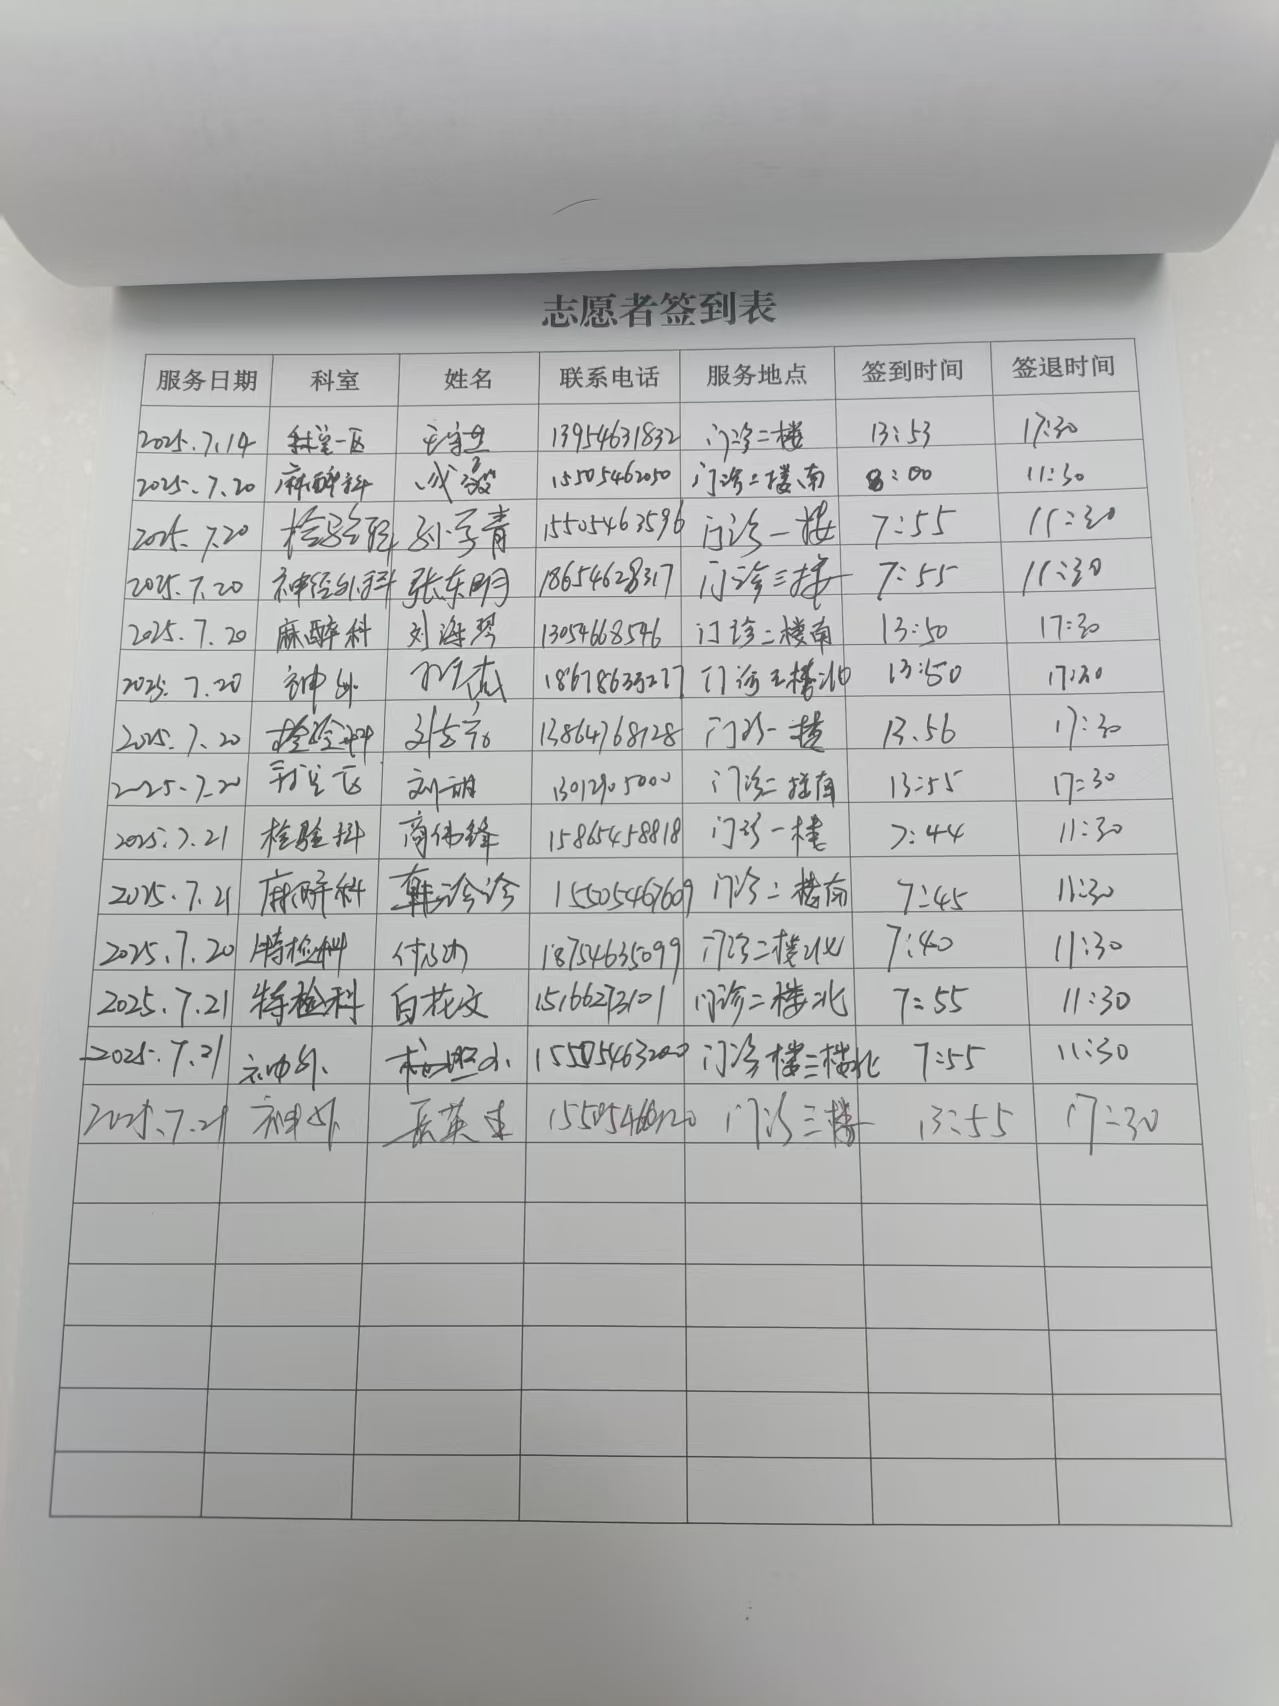 志愿者签到表
服务日期 科室 姓名 联系电话 服务地点 签到时间 签退时间
2025.7.14 一区 13954631832 门诊二楼 13:53 17:30
2025.7.20 麻醉科 成毅 15505462050 门诊二楼南 8:00 11:30
2025.7.20 检验科 孙学青 15505463596 门诊一楼 7:55 11:30
2025.7.20 神经外科 张东明 18654628317 门诊三楼 7:55 11:30
2025.7.20 麻醉科 刘海琴 13054668546 门诊二楼南 13:50 17:30
2025.7.20 神外 门诊三楼北 13:50 17:30
2025.7.20 检验科 13864768128 门诊一楼 13.56 17:30
2025.7.20 刘 13012905000 门诊二楼南 13:55 17:30
2025.7.21 检验科 商伟锋 15865458818 门诊一楼 7:44 11:30
2025.7.21 麻醉科 韩诊诊 15505467609 门诊二楼南 7:45 11:30
2025.7.20 特检科 18754635099 门诊二楼北 7:40 11:30
2025.7.21 特检科 白花文 15166273101 门诊二楼北 7:55 11:30
2025.7.21 神外 门诊楼三楼北 7:55 11:30
2025.7.21 神外 门诊三楼 13:55 17:30